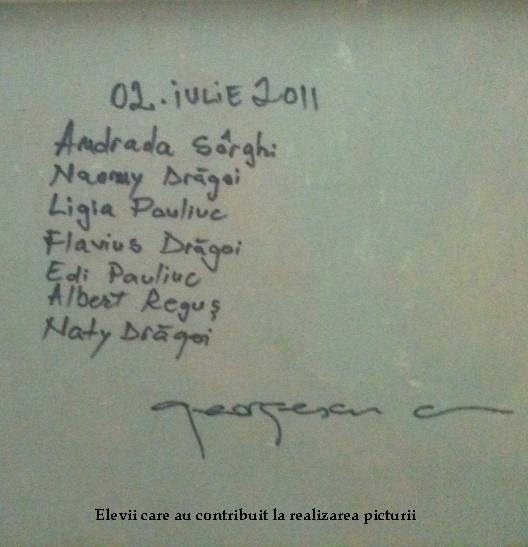 02. iULiE 2011
Andrada Sârghi
Naomy Drăgoi
Ligia Pauliuc
Flavius Drăgoi
Edi Pauliuc
Albert Reguş
Naty Drăgoi
georgescu c
Elevii care au contribuit la realizarea picturii